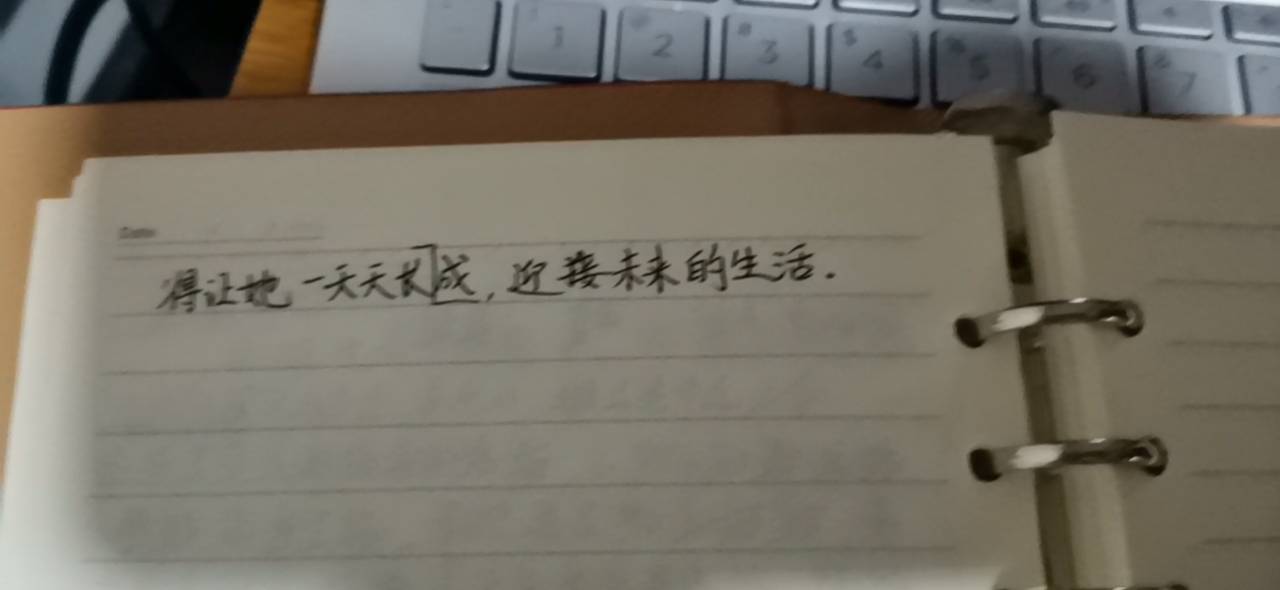 1 2 3 4 5 6 7
Date
得让她一天天长成,迎接未来的生活.